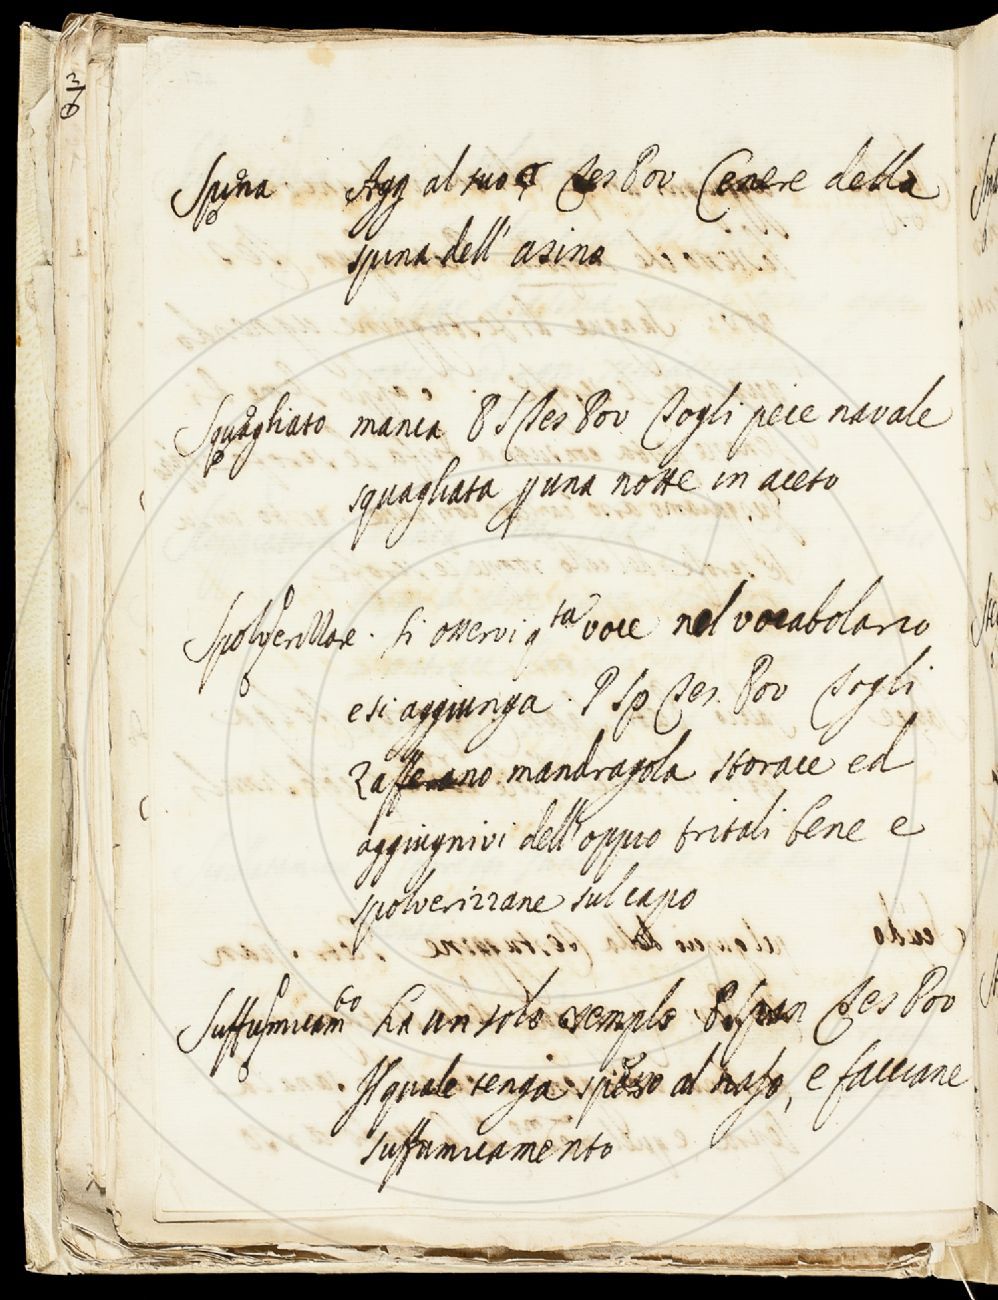 3/6
Spina Agg al suo § Tes Pov Cenere della
spina dell' asino
Squagliato manca P S Tes Pov Togli pece navale
squagliata p una notte in aceto
Spolverizzare. si osservi q.ta voce nel vocabolario
e si aggiunga. P Sp Tes. Pov Togli
Zafferano mandragola storace ed
aggiugnivi dell'oppio tritali bene e
spolverizzane sul capo
Suffumicam.to ha un solo esemplo P. Span Tes Pov
Il quale tenga spesso al naso, e facciane
suffumicamento